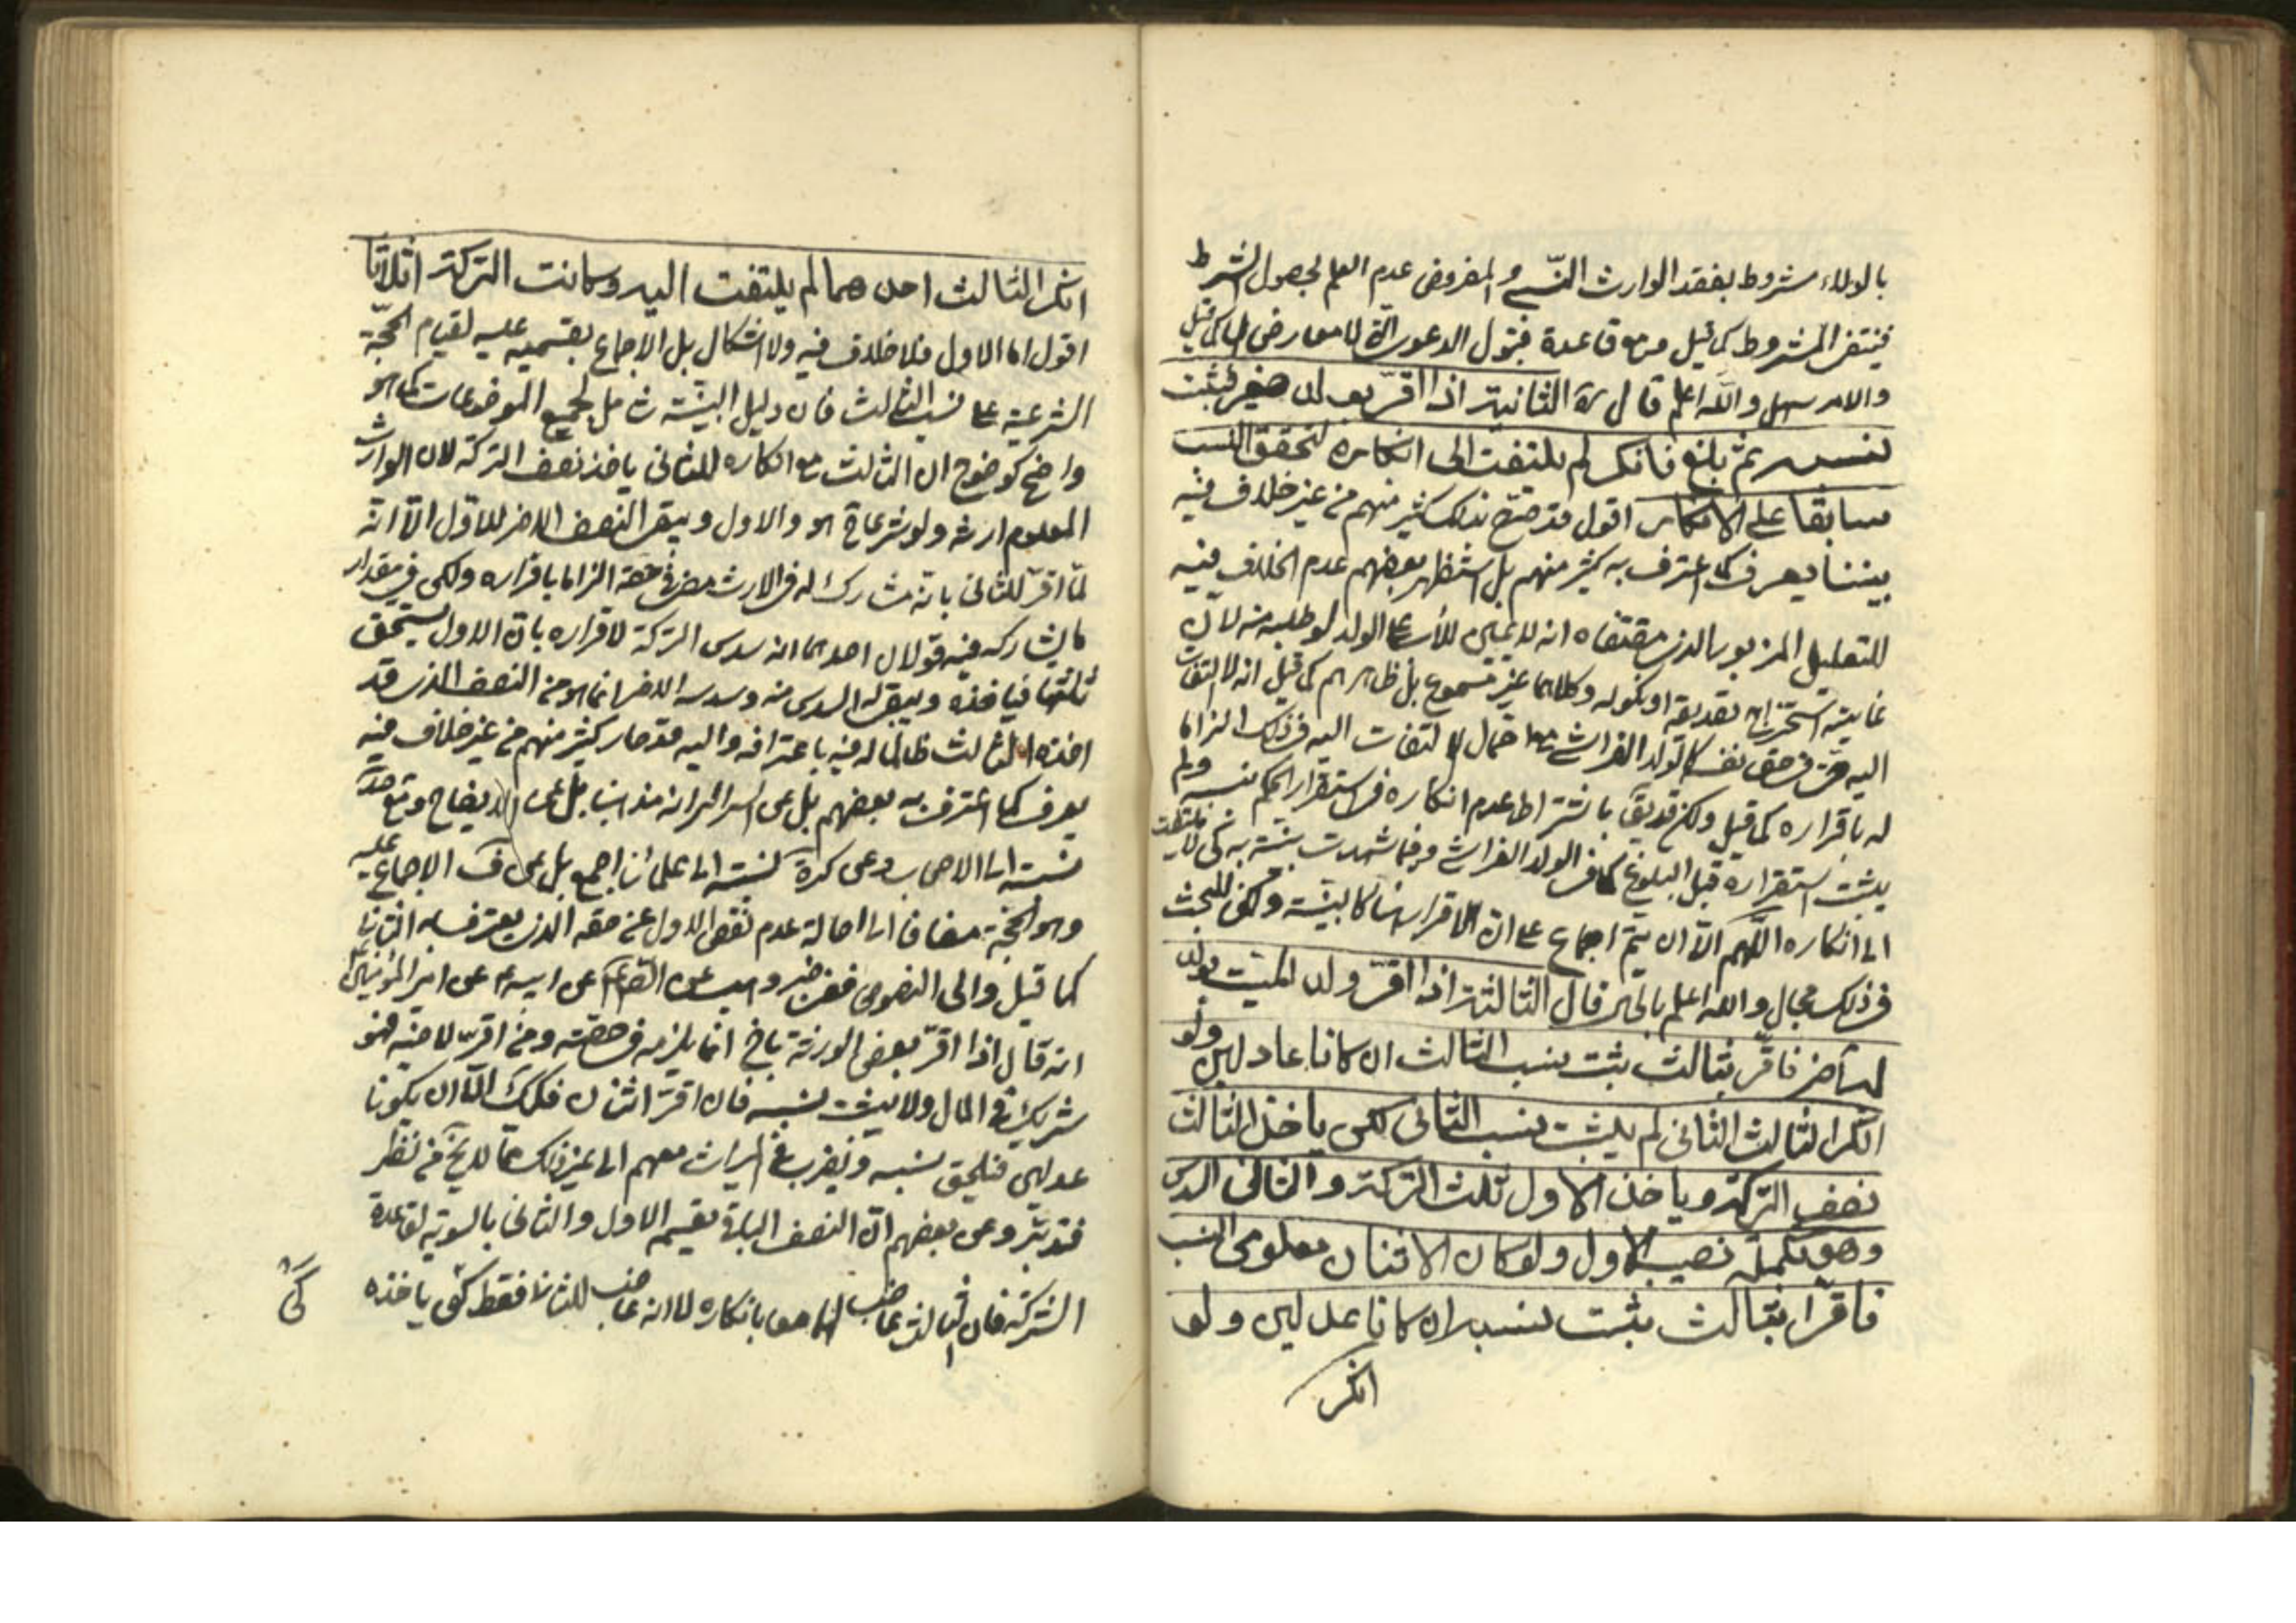 بالولاء مشروط بفقد الوارث النسبي والمفروض عدم العلم بحصول الشرط
فينتفي المشروط كما قيل مع قاعدة قبول الدعوى التي لا معارض لها كما قيل
والامر سهل والله اعلم قال ره الثانية اذا اقرّ بولد صغير فيثبت
نسبه ثم بلغ فانكر لم يلتفت الى انكاره لتحقق النسب
سابقا على الانكار اقول قد صرّح بذلك كثير منهم من غير خلاف فيه
بيننا يعرف كما اعترف به كثير منهم بل استظهر بعضهم عدم الخلاف فيه
للتعليل المزبور الذي مقتضاه انه لا يمين للأب على الولد لو طلبه منه لان
غايته استخراج تصديقه او نكوله وكلاهما غير مسموع بل ظاهرهم كما قيل انه لا التفات
اليه حتى في حق نفسه كالولد الفراشي مع احتمال الالتفات اليه في ذلك الزاما
له باقراره كما قيل ولكن قد يقال باشتراط عدم انكاره في استقرار الحكم بنسبه ولم
يثبت استقراره قبل البلوغ كما في الولد الفراشي وفيما شهدت بينة به كي لا يلتفت
الى انكاره اللهم الا ان يتم اجماع على ان الاقرار هنا كالبينة ولكن للبحث
في ذلك مجال والله اعلم بالحال قال الثالثة اذا اقرّ ولد الميت بولد
له آخر فاقرّ بثالث يثبت نسب الثالث ان كانا عادلين ولو
انكر الثالث الثاني لم يثبت نسب الثاني لكن ياخذ الثالث
نصف التركة وياخذ الاول ثلث التركة والثاني السدس
وهو تكملة نصيب الاول ولو كان الاثنان معلومي النسب
فاقرّا بثالث يثبت نسبه ان كانا عدلين ولو
انكر
انكر الثالث احدهما لم يلتفت اليه وكانت التركة اثلاثا
اقول اما الاول فلا خلاف فيه ولا اشكال بل الاجماع بقسميه عليه لقيام الحجّة
الشرعية على نسب الثالث فان دليل البيّنة شامل لجميع الموضوعات كما هو
واضح كوضوح ان الثالث مع انكاره للثاني ياخذ نصف التركة لان الوارث
المعلوم ارثه ولو شرعا هو والاول ويبقى النصف الاخر للاول الا انه
لمّا اقرّ للثاني بانه مشارك له في الارث مضى في حقه الزاما باقراره ولكن في مقدار
ما يشاركه فيه قولان احدهما انه سدس التركة لاقراره بان الاول يستحق
ثلثها فياخذه ويبقى له السدس منه وسدسه الاخر انما هو من النصف الذي قد
اخذه الثالث ظالما له فيه باعترافه واليه قد صار كثير منهم من غير خلاف فيه
يعرف كما اعترف به بعضهم بل عن السرائر انه مذهبنا بل عن الايضاح
نسبته الى الاصحاب وعن كرة نسبته الى علمائنا اجمع بل عن ف الاجماع عليه
وهو الحجّة مضافا الى اصالة عدم نقص الاول عن حقه الذي يعترف به الثاني
كما قيل والى النصوص ففي خبر وهيب عن الصادق ع عن ابيه ع عن امير المؤمنين ع
انه قال اذا اقرّ بعض الورثة باخ انما يلزمه في حصّته ومن اقرّ لاخيه فهو
شريك في المال ولا يثبت نسبه فان اقرّ اثنان فكذلك الا ان يكونا
عدلين فيلحق نسبه ويضرب في الميراث معهم الى غير ذلك مما لا يخ من نظر
فتدبّر وعن بعضهم ان النصف الباقي يقسم الاول والثاني بالسوية لقاعدة
الشركة فان الثالث غاصب لهما معا بانكاره لا انه غاصب للثاني فقط كي ياخذه
كي